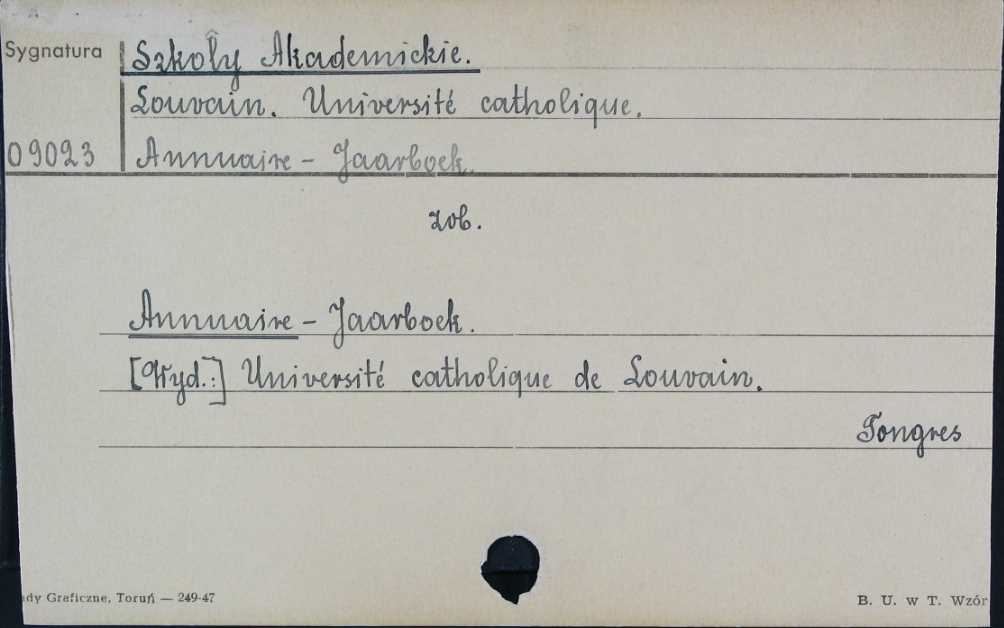 Sygnatura Szkoły Akademickie.
Louvain. Université catholique.
09023 Annuaire - Jaarboek.
zob.
Annuaire - Jaarboek.
[Wyd.:] Université catholique de Louvain.
Tongres
ady Graficzne, Toruń — 249-47 B. U. w T. Wzór